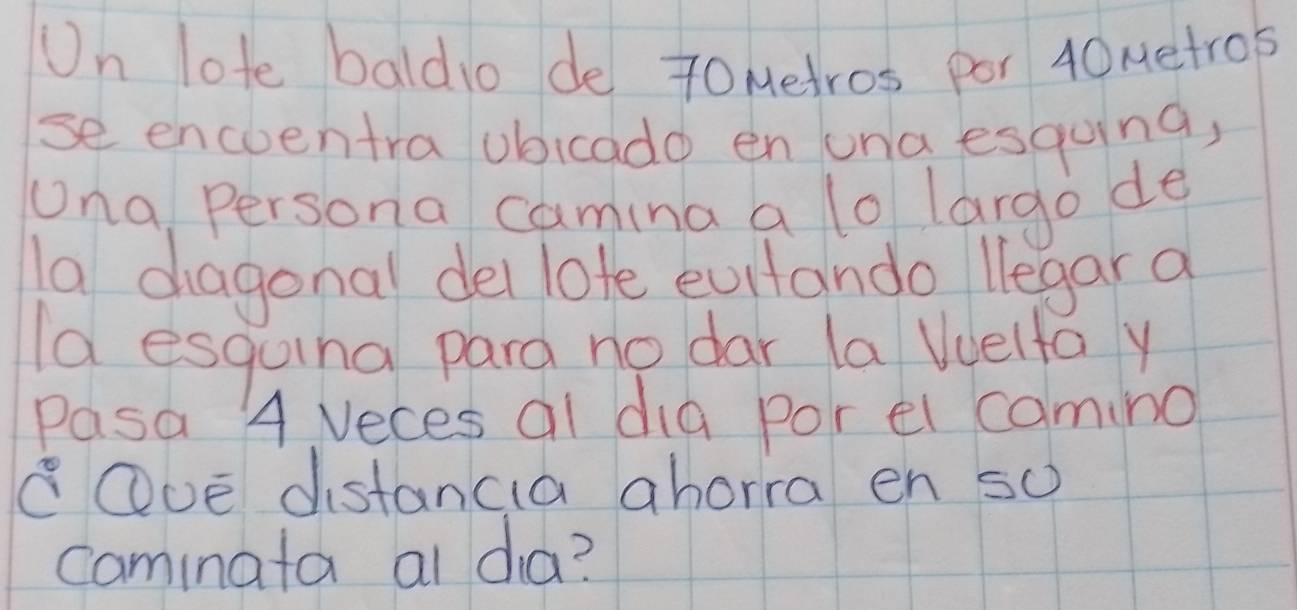 Un lote baldio de 70 Metros por 40 Metros
se encuentra ubicado en una esquina,
Una Persona camina a lo largo de
la diagonal del lote evitando llegar a
la esquina para no dar la Vuelta y
Pasa 4 veces al dia por el camino
¿Que distancia ahorra en su
caminata al dia?